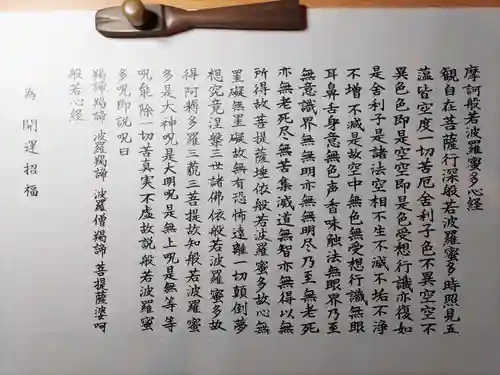 摩訶般若波羅蜜多心経
観自在菩薩行深般若波羅蜜多時照見五
蘊皆空度一切苦厄舎利子色不異空空不
異色色即是空空即是色受想行識亦復如
是舎利子是諸法空相不生不滅不垢不浄
不増不減是故空中無色無受想行識無眼
耳鼻舌身意無色声香味触法無眼界乃至
無意識界無無明亦無無明尽乃至無老死
亦無老死尽無苦集滅道無智亦無得以無
所得故菩提薩埵依般若波羅蜜多故心無
罣礙無罣礙故無有恐怖遠離一切顛倒夢
想究竟涅槃三世諸佛依般若波羅蜜多故
得阿耨多羅三藐三菩提故知般若波羅蜜
多是大神呪是大明呪是無上呪是無等等
呪能除一切苦真実不虚故説般若波羅蜜
多呪即説呪曰
羯諦羯諦 波羅羯諦 波羅僧羯諦 菩提薩婆呵
般若心経
為 開運招福